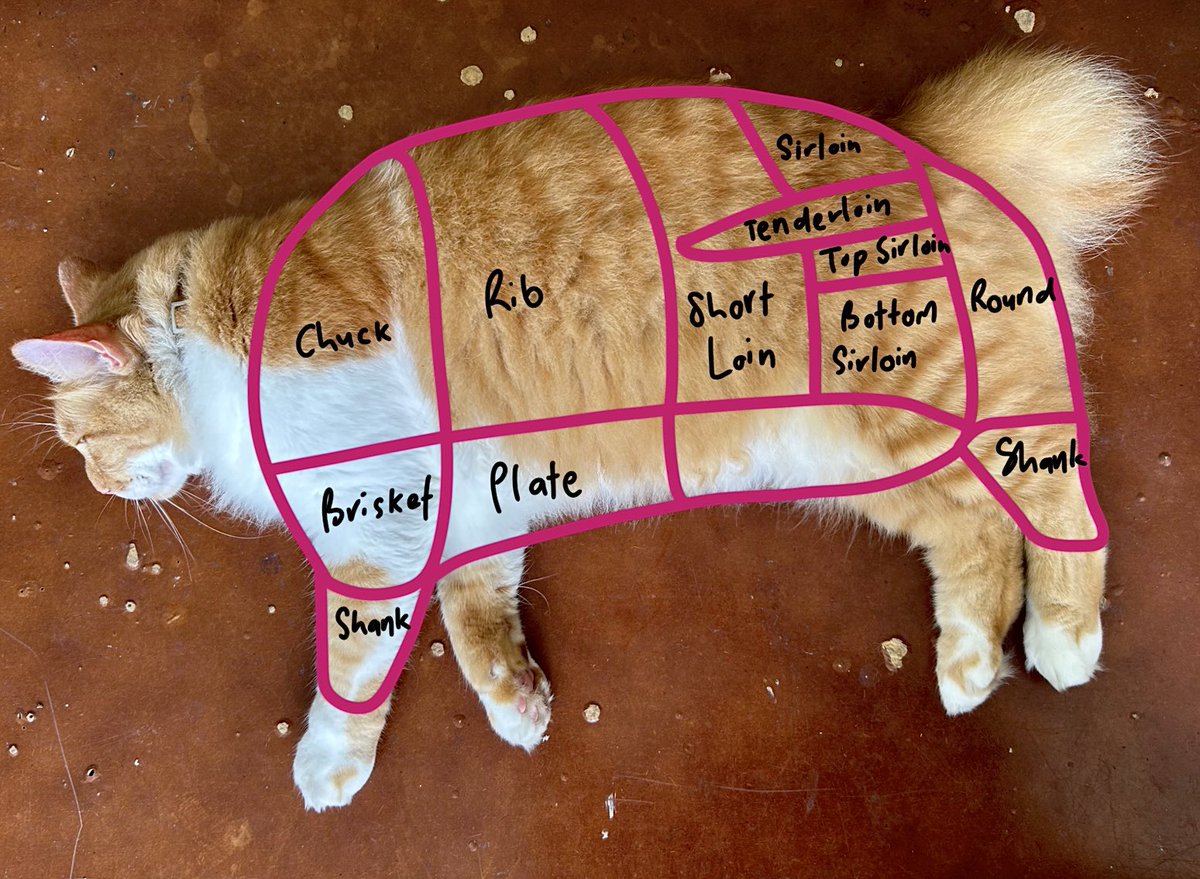 Sirloin
Tenderloin
Top Sirloin
Rib
Short
Loin
Bottom
Sirloin
Round
Chuck
Plate
Brisket
Shank
Shank